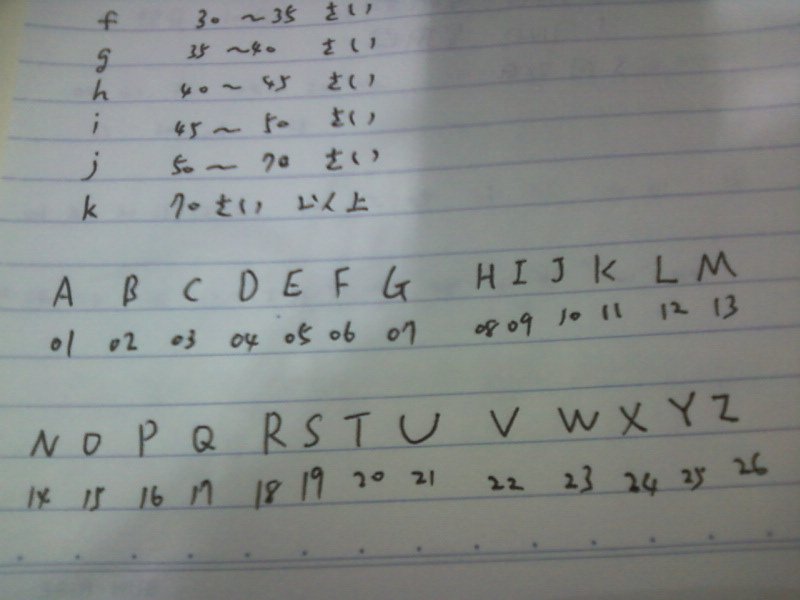 f 30〜35 さい
g 35〜40 さい
h 40〜45 さい
i 45〜50 さい
j 50〜70 さい
k 70さい 以上
A B C D E F G H I J K L M
01 02 03 04 05 06 07 08 09 10 11 12 13
N O P Q R S T U V W X Y Z
14 15 16 17 18 19 20 21 22 23 24 25 26